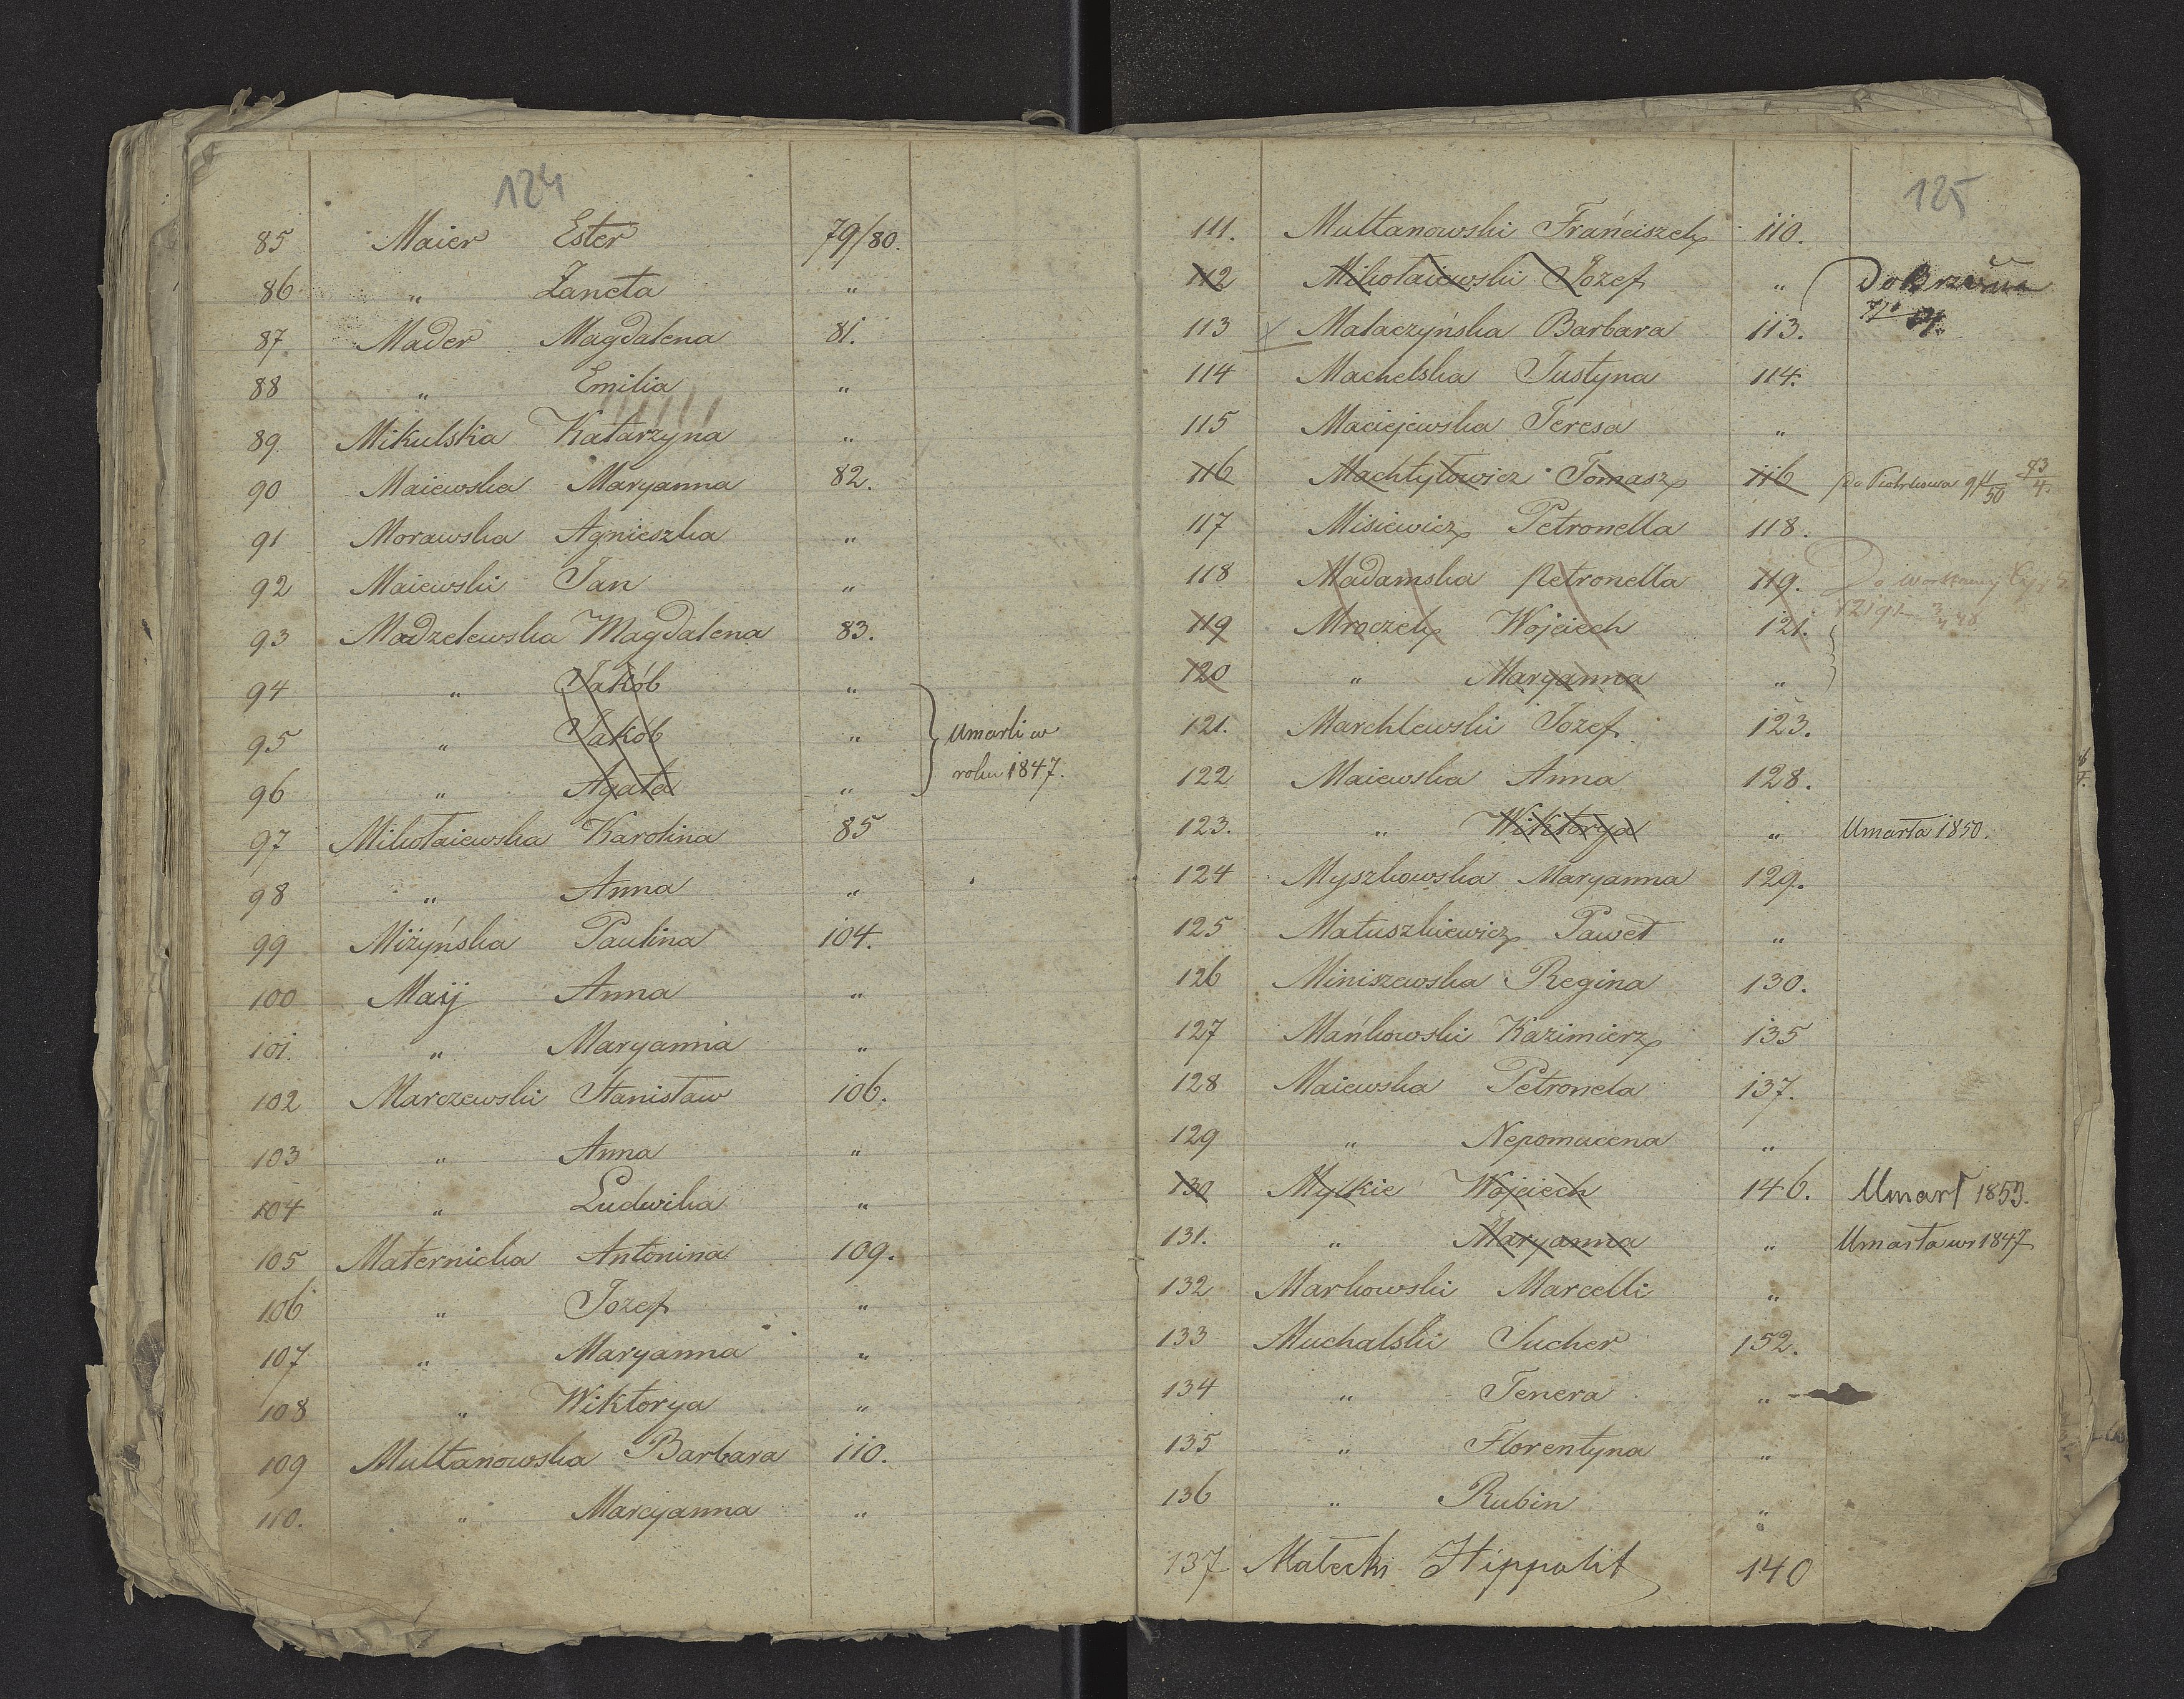 124
85 Maier Ester 79/80.
86 " Żaneta "
87 Mader Magdalena 81.
88 " Emilia "
89 Mikulska Katarzyna "
90 Maiewska Maryanna 82.
91 Morawska Agnieszka "
92 Maiewski Jan "
93 Madzelewska Magdalena 83.
94 " Jakób "
95 " Jakób " Umarli w
96 " Agata " roku 1847.
97 Mikołaiewska Karolina 85
98 " Anna "
99 Miżyńska Paulina 104.
100 Maij Anna "
101. " Maryanna "
102 Marczewski Stanisław 106.
103 " Anna "
104 " Ludwika "
105 Maternicka Antonina 109.
106 " Jozef "
107 " Maryanna "
108 " Wiktorya "
109 Multanowska Barbara 110.
110. " Marcyanna "
125
111. Multanowski Frańciszek 110.
112 Mikołaiewski Jozef "
113 Małaczyńska Barbara 113.
114 Machelska Justyna 114.
115 Maciejewska Teresa "
116 Machtyłowicz Tomasz 116 do Piotrkowa
117 Misiewicz Petronella 118.
118 Madamska Petronella 119.
119 Mroczek Wojciech 121.
120 " Maryanna "
121. Marchlewski Jozef 123.
122 Maiewska Anna 128.
123. " Wiktorya " Umarła 1850.
124 Myszkowska Maryanna 129.
125 Matuszkiewicz Paweł "
126 Miniszewska Regina 130.
127 Mańkowski Kazimierz 135
128 Maiewska Petronela 137.
129 " Nepomucena "
130 Mylkie Wojciech 146. Umarł 1853.
131. " Maryanna " Umarła w 1847
132 Markowski Marcelli "
133 Muchalski Sucher 152.
134 " Tenera "
135 " Florentyna "
136 " Rubin "
137 Małecki Hippolit 140